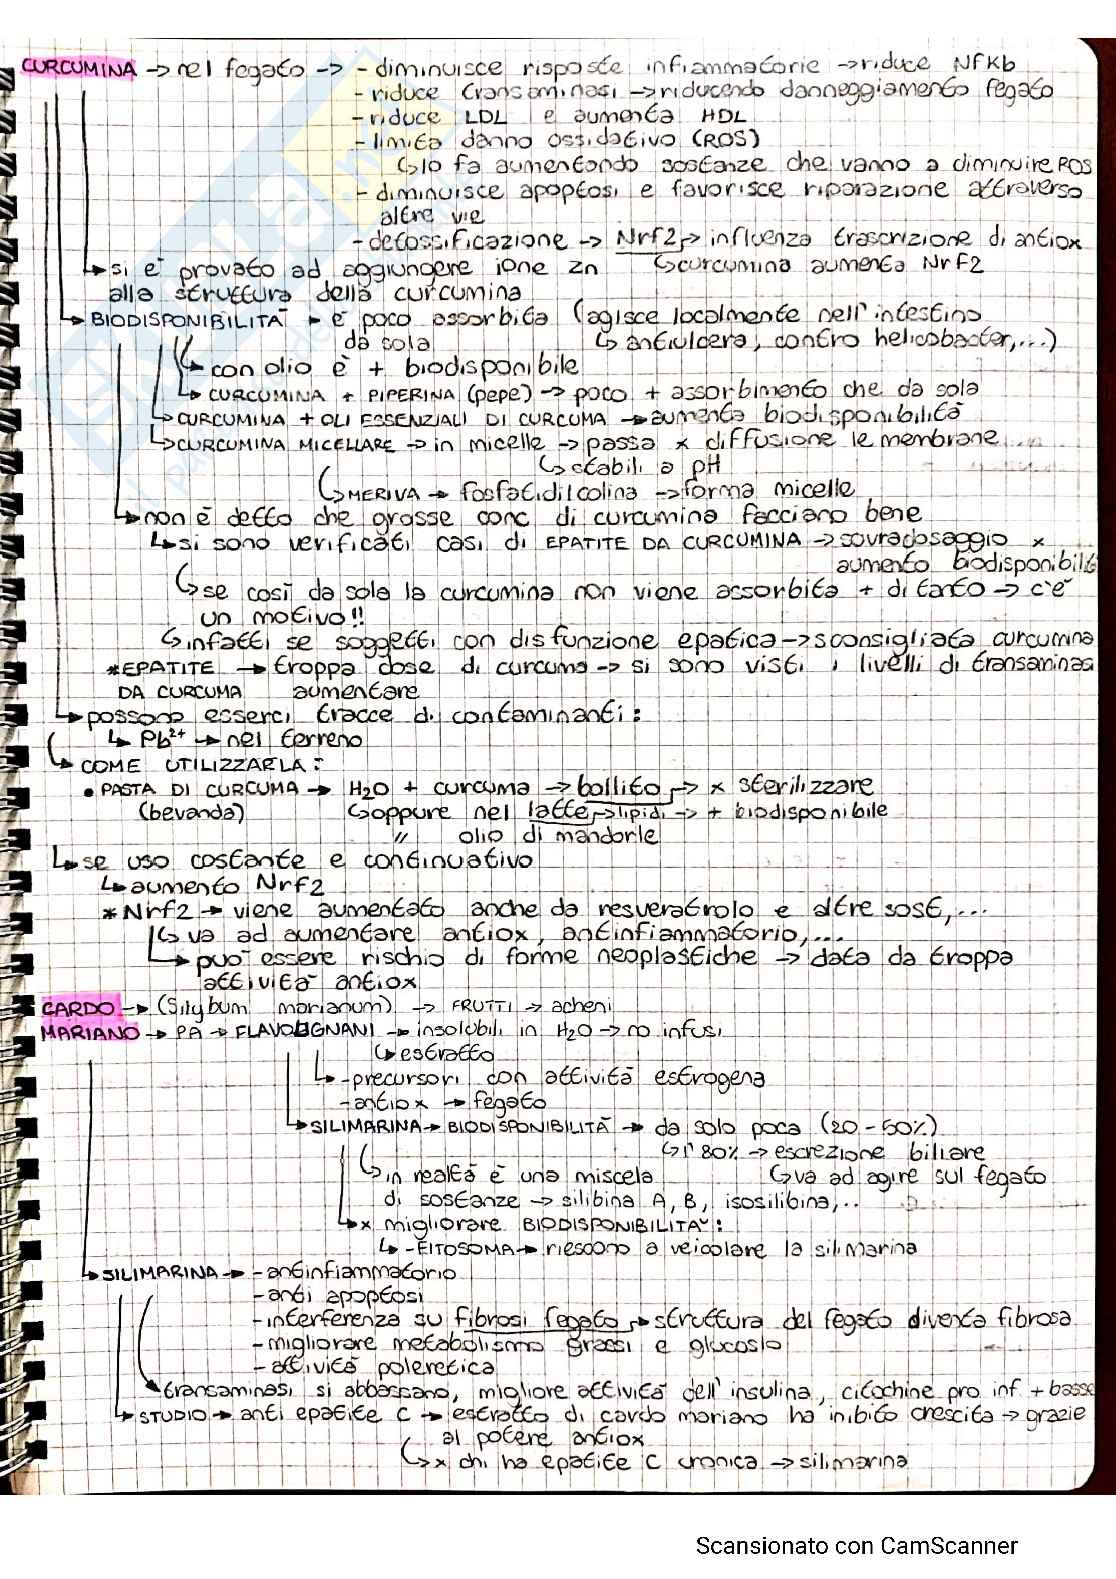 CURCUMINA → nel fegato → - diminuisce risposte infiammatorie → riduce NfKb
- riduce transaminasi → riducendo danneggiamento fegato
- riduce LDL e aumenta HDL
- limita danno ossidativo (ROS)
↳ lo fa aumentando sostanze che vanno a diminuire ROS
- diminuisce apoptosi e favorisce riparazione attraverso
altre vie
- detossificazione → Nrf2 → influenza trascrizione di antiox
↳ si è provato ad aggiungere ione Zn ↳ curcumina aumenta Nrf2
alla struttura della curcumina
↳ BIODISPONIBILITÀ → è poco assorbita (agisce localmente nell'intestino
da sola ↳ antiulcera, contro helicobacter,...)
↳ con olio è + biodisponibile
↳ CURCUMINA + PIPERINA (pepe) → poco + assorbimento che da sola
↳ CURCUMINA + OLI ESSENZIALI DI CURCUMA → aumenta biodisponibilità
↳ CURCUMINA MICELLARE → in micelle → passa x diffusione le membrane...
↳ stabili a pH
↳ MERIVA → fosfatidilcolina → forma micelle
↳ non è detto che grosse conc di curcumina facciano bene
↳ si sono verificati casi di EPATITE DA CURCUMINA → sovradosaggio x
aumento biodisponibilità
↳ se così da sola la curcumina non viene assorbita + di tanto → c'è
un motivo!!
↳ infatti se soggetti con disfunzione epatica → sconsigliata curcumina
*EPATITE → troppa dose di curcuma → si sono visti i livelli di transaminasi
DA CURCUMA aumentare
↳ possono esserci tracce di contaminanti:
↳ Pb²⁺ → nel terreno
↳ COME UTILIZZARLA:
• PASTA DI CURCUMA → H2O + curcuma → bollito → x sterilizzare
(bevanda) ↳ oppure nel latte → lipidi → + biodisponibile
" olio di mandorle
↳ se uso costante e continuativo
↳ aumento Nrf2
* Nrf2 → viene aumentato anche da resveratrolo e altre sost,...
↳ va ad aumentare antiox, antinfiammatorio,...
↳ può essere rischio di forme neoplastiche → data da troppa
attività antiox
CARDO → (Silybum marianum) → FRUTTI → acheni
MARIANO → PA → FLAVOLIGNANI → insolubili in H2O → no infusi
↳ estratto
↳ - precursori con attività estrogena
- antiox → fegato
↳ SILIMARINA → BIODISPONIBILITÀ → da solo poca (20-50%)
↳ l'80% → escrezione biliare
↳ in realtà è una miscela ↳ va ad agire sul fegato
di sostanze → silibina A, B, isosilibina,..
↳ x migliorare BIODISPONIBILITÀ:
↳ - FITOSOMA → riescono a veicolare la silimarina
↳ SILIMARINA → - antinfiammatorio
- anti apoptosi
- interferenza su fibrosi fegato → struttura del fegato diventa fibrosa
- migliorare metabolismo grassi e glucosio
- attività poleretica
transaminasi si abbassano, migliore attività dell'insulina, citochine pro inf. + basse
↳ STUDIO → anti epatite C → estratto di cardo mariano ha inibito crescita → grazie
al potere antiox
↳ x chi ha epatite C cronica → silimarina
Scansionato con CamScanner